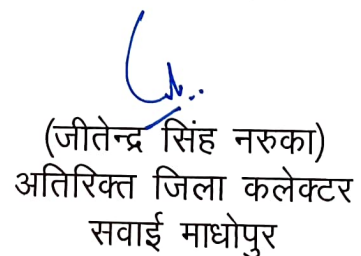 (जीतेन्द्र सिंह नरुका)
अतिरिक्त जिला कलेक्टर
सवाई माधोपुर